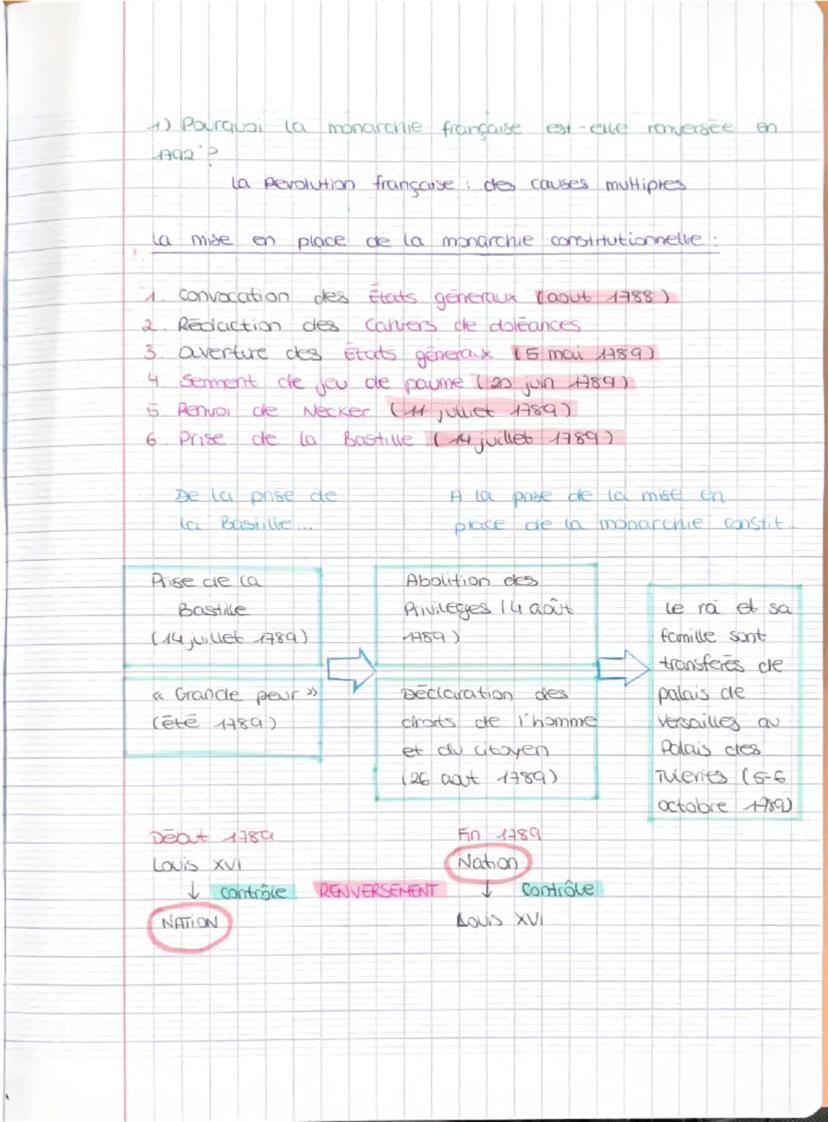 1) Pourquoi la monarchie française est-elle renversée en
1792 ?
La Révolution française : des causes multiples
La mise en place de la monarchie constitutionnelle :
1. Convocation des États généraux (aout 1788)
2. Rédaction des Cahiers de doléances
3. Ouverture des États généraux (5 mai 1789)
4 Serment de jeu de paume (20 juin 1789)
5 Renvoi de Necker (11 juillet 1789)
6 Prise de la Bastille (14 juillet 1789)
De la prise de
la Bastille...
A la prise de la mise en
place de la monarchie constit.
Prise de la
Bastille
(14 juillet 1789)
« Grande peur »
(été 1789)
Abolition des
Privilèges (4 août
1789)
Déclaration des
droits de l'homme
et du citoyen
(26 aout 1789)
Le roi et sa
famille sont
transférés de
palais de
Versailles au
Palais des
Tuileries (5-6
octobre 1989)
Début 1789
Louis XVI
↓ contrôle
NATION
RENVERSEMENT
Fin 1789
Nation
↓ Contrôle
Louis XVI